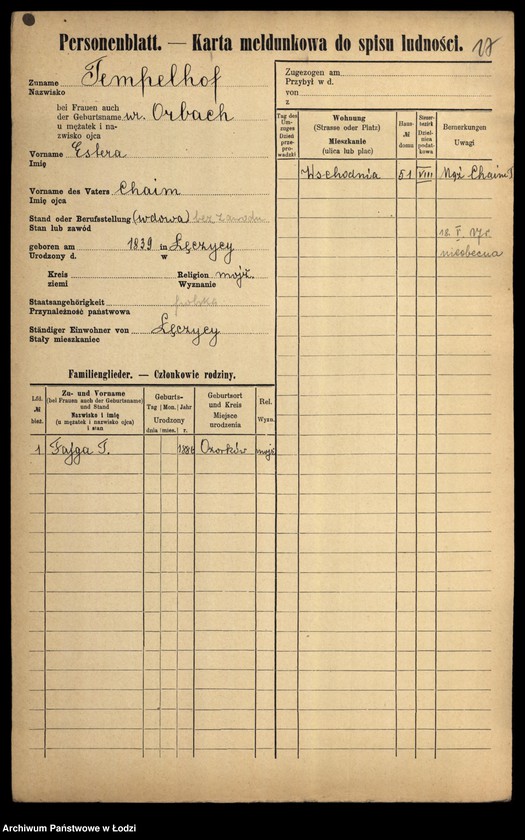 Personenblatt. — Karta meldunkowa do spisu ludności. 17
Zuname Tempelhof
Nazwisko
bei Frauen auch
der Geburtsname ur. Orbach
u mężatek i na-
zwisko ojca
Vorname Estera
Imię
Vorname des Vaters Chaim
Imię ojca
Stand oder Berufsstellung (wdowa) bez zawodu
Stan lub zawód
geboren am 1839 in Łęczycy
Urodzony d. w
Kreis Religion mojż.
ziemi Wyznanie
Staatsangehörigkeit polska
Przynależność państwowa
Ständiger Einwohner von Łęczycy
Stały mieszkaniec
Familienglieder. — Członkowie rodziny.
Lfd. № bież.
Zu- und Vorname
(bei Frauen auch der Geburtsname)
und Stand
Nazwisko i imię
(u mężatek i nazwisko ojca)
i stan
Geburts-
Tag Mon. Jahr
Urodzony
dnia mies. r.
Geburtsort
und Kreis
Miejsce
urodzenia
Rel.
Wyzn.
1 Fajga T. Ozorków mojż.
Zugezogen am
Przybył w d.
von
z
Tag des
Um-
zuges
Dzień
prze-
prowadzki
Wohnung
(Strasse oder Platz)
Mieszkanie
(ulica lub plac)
Haus-
№
domu
Steuer-
bezirk
Dziel-
nica
podat-
kowa
Bemerkungen
Uwagi
Wschodnia 51 VIII Mąż Chaim T
18. V. 17 r.
nieobecna
Archiwum Państwowe w Łodzi